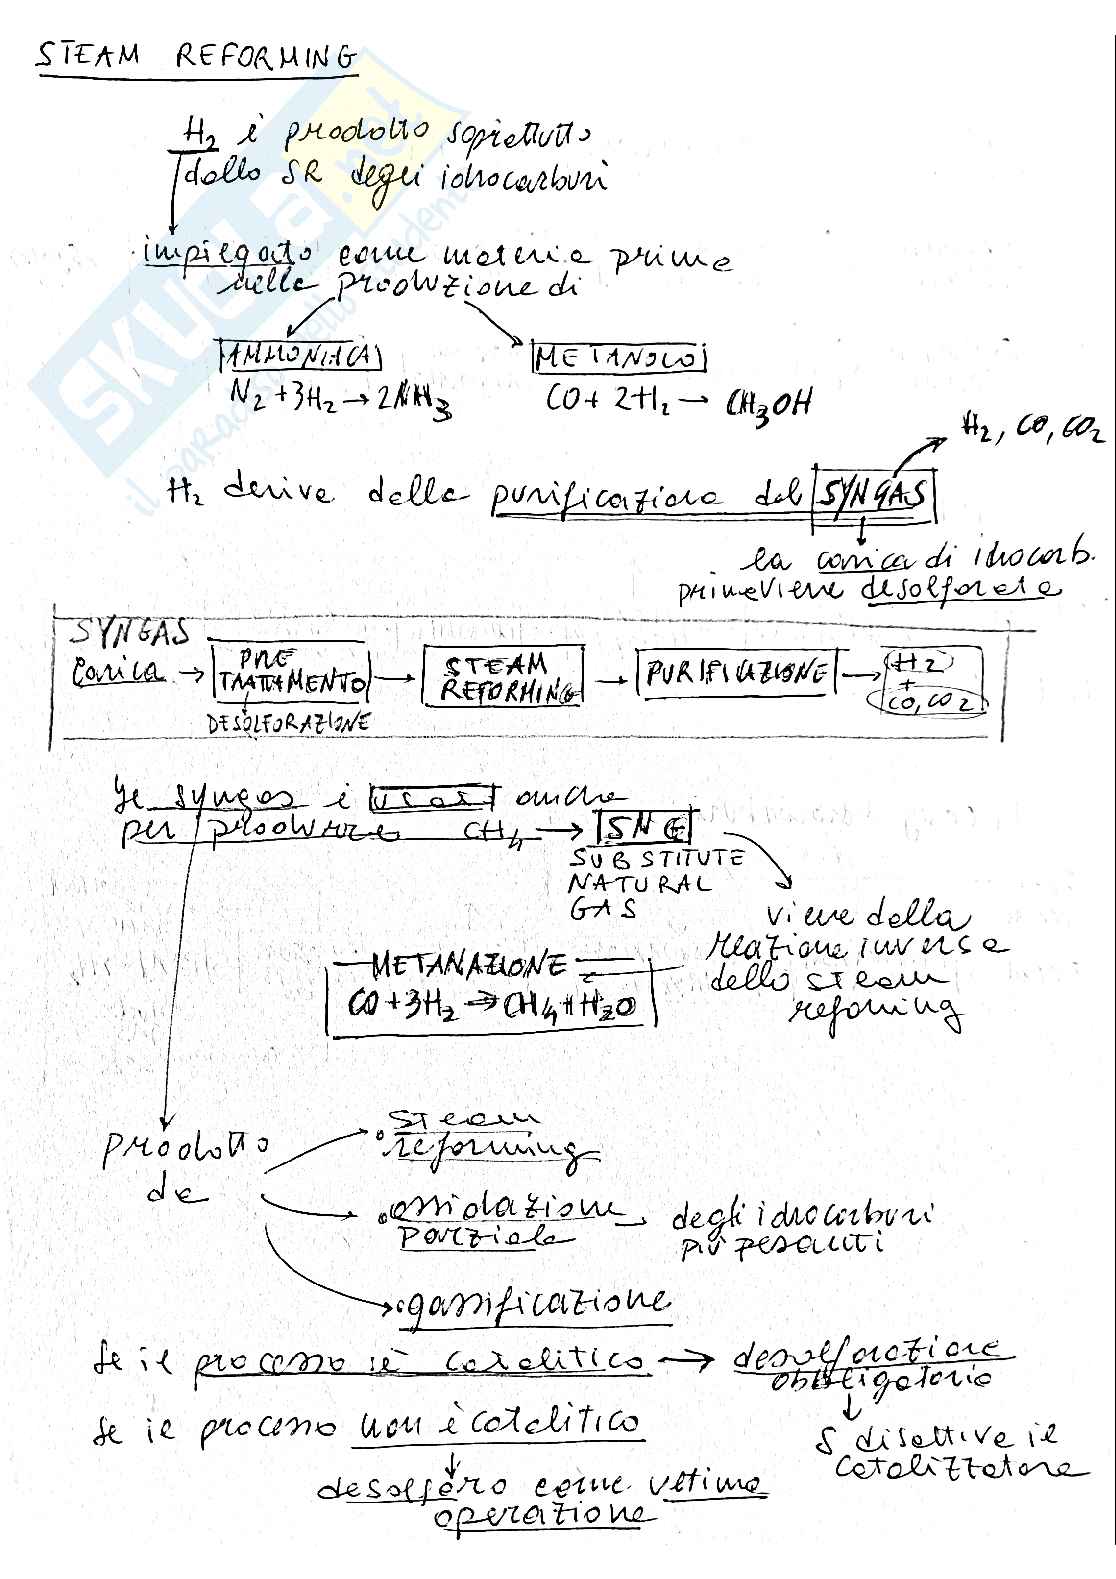 STEAM REFORMING
H2 è prodotto soprattutto
dallo SR degli idrocarburi
impiegato come materia prima
nella produzione di
AMMONIACA
METANOLO
N2 + 3H2 → 2NH3
CO + 2H2 → CH3OH
H2, CO, CO2
H2 deriva dalla purificazione del SYNGAS
la carica di idrocarb.
prima viene desolforata
SYNGAS
Carica → PRE TRATTAMENTO → STEAM REFORMING → PURIFICAZIONE → H2 + CO, CO2
DESOLFORAZIONE
Il syngas è usato anche
per produrre CH4 → SNG
SUBSTITUTE
NATURAL
GAS
viene dalla
reazione inversa
dello steam
refoming
METANAZIONE
CO + 3H2 → CH4 + H2O
Prodotto
da
• steam
reforming
• ossidazione
parziale → degli idrocarburi
più pesanti
• gassificazione
Se il processo è catalitico → desolforazione
obbligatoria
Se il processo non è catalitico
S disattiva il
catalizzatore
desolforo come ultima
operazione
SKUOLA.net